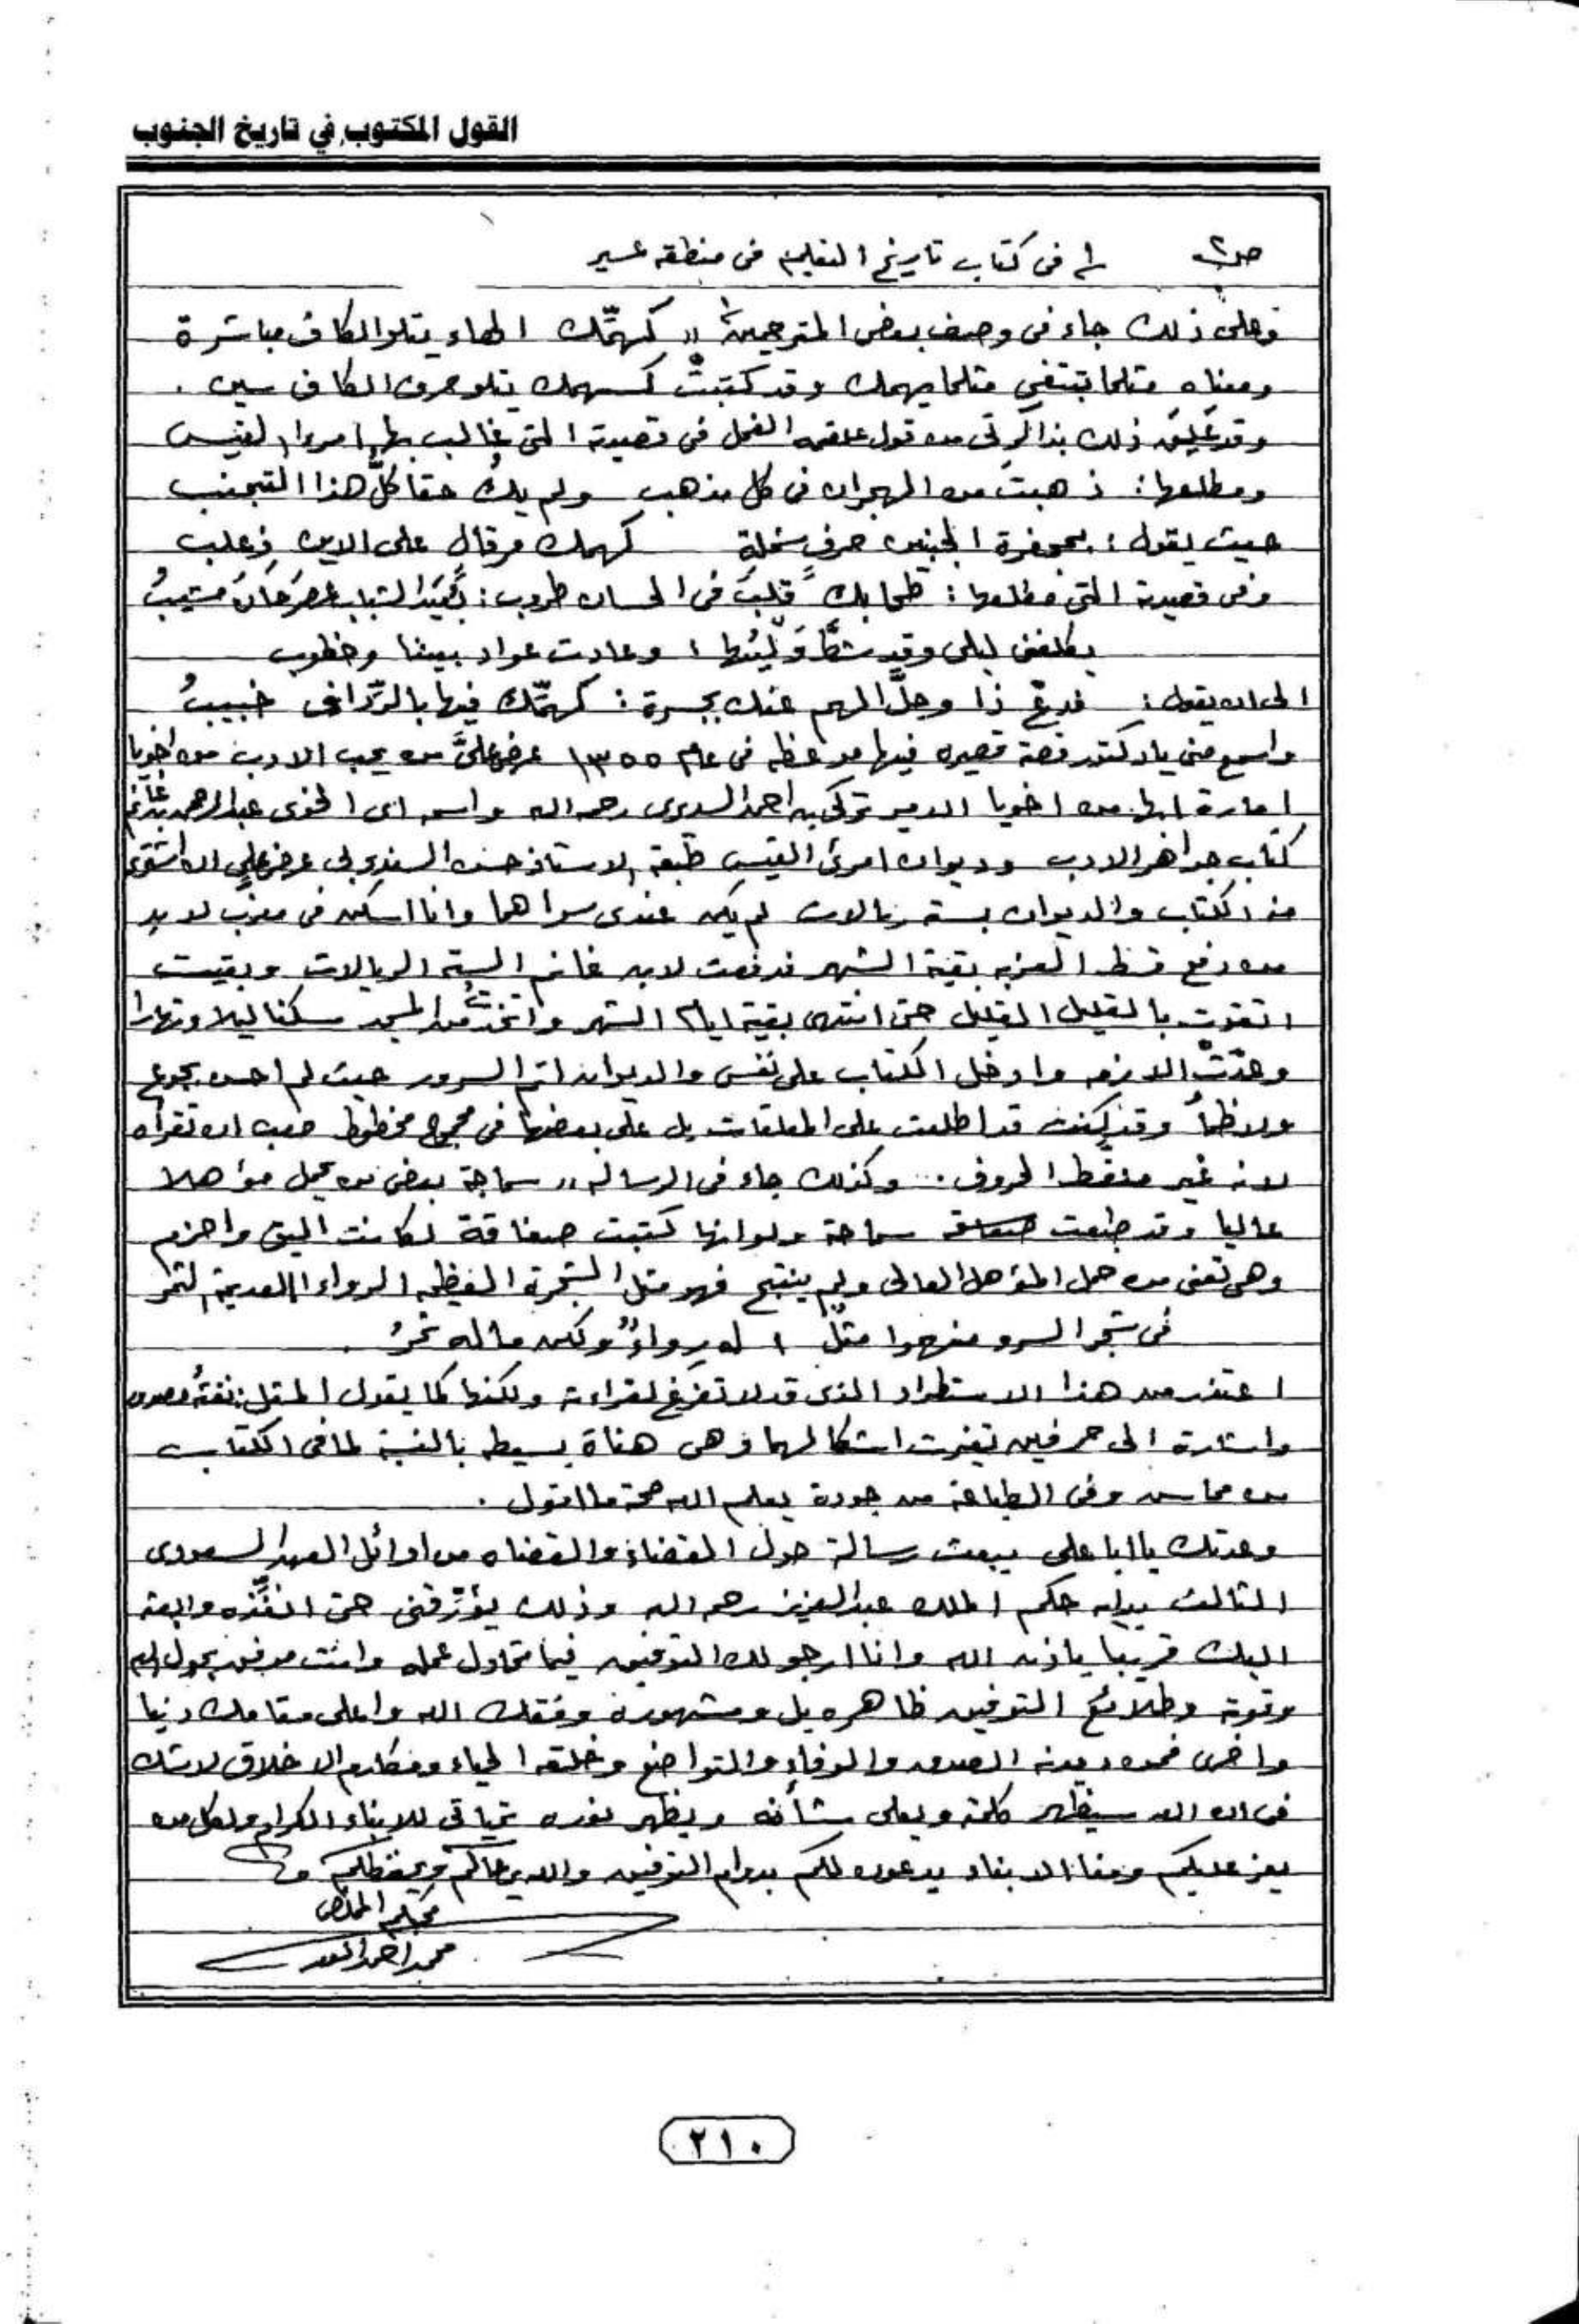 القول المكتوب في تاريخ الجنوب
ص٢ ١/ في كتاب تاريخ التعليم في منطقة عسير
وعلى ذلك جاء في وصف بعض المترجمين ١/ " كهمّك الهاء يتلو الكاف مباشرة
ومعناه مثلما تبتغي مثلما يهمك وقد كتبتْ كسهمك يتلو حرف الكاف سين .
وقد علِق ذلك بذاكرتي من قول علقمه الفحل في قصيدته التي غالب بها امروا القيس
ومطلعها : ذهبتَ من الهجران في كل مذهب ولم يكُ حقا كلُّ هذا التجنب
حيث يقول : بمجفرة الجنبين حرفٍ شملةٍ كهمك مرقالٍ على الاين ذعلب
وفي قصيدته التي مطلعها : طحا بك قلبٌ في الحسان طروب : بُعَيْدَ الشباب عصرَ حانَ مشيبُ
يكلفني ليلى وقد شطَّ وَلْيُها ؛ وعادت عواد بيننا وخطوب
الى ان يقول : فدعْ ذا وجلِّ الهم عنك بجسرة : كهمّك فيها بالرّدافى خبيبُ
واسمع مني يا دكتور قصة قصيره فيها موعظه في عام ١٣٥٥ عرض عليَّ من يحب الادب من اخويا
امارة ابها من اخويا الامير تركي بن احمد السديري رحمه الله واسمه اي الخوي عبدالرحمن بن غانم
كتاب جواهر الادب وديوان امرئ القيس طبعة الاستاذ حسن السندوبي عرض علي ان اشتري
منه الكتاب والديوان بستة ريالات لم يكن عندي سواها وانا اسكن في معزب لا بد
من دفع قسط العزبه بقية الشهر فدفعت لابن غانم الستة الريالات وبقيت
اتقوت بالقليل القليل حتى انتهى بقية ايام الشهر واتخذتُ من المسجد سكنا ليلا ونهارا
وهدّتْ الازمه وادخل الكتاب على نفسي والديوان اتم السرور حيث لم احس بجوع
ولا ظمأ وقد كنت قد اطلعت على المعلقات بل على بعضها في مجموع مخطوط صعب ان تقرأه
لانه غير منقط الحروف .. وكذلك جاء في الرساله " سماجة بعض من يحمل مؤهلا
عاليا وقد طبعت سماحة ولو انها كتبت صفاقة لكانت اليق واحزم
وهي تعني من حمل المؤهل العالي ولم ينتج فهو مثل الشجرة العظيمه الرواء العديمة الثمر
في شجر السرو منهموا مثلٌ ؛ له رواءٌ ولكن ماله ثمرُ .
اعتذر من هذا الاستطراد الذي قد لا تفرغ لقراءته ولكنها كما يقول المثل : نفثةُ مصدور
واشارة الى حرفين تغيرت اشكالهما وهي هناة بسيطه بالنسبة لما في الكتاب
من محاسن وفي الطباعة من جودة يعلم الله صحة ما اقول .
وعدتك يا ابا علي ببعث رسالة حول القضاء والقضاه من اوائل العهد السعودي
الثالث بدايه حكم الملك عبدالعزيز رحمه الله وذلك يؤرّقني حتى انفّذه وابعثه
اليك قريبا باذن الله وانا ارجو لك التوفيق فيما تحاول عمله وانت موفق بحول الله
وقوته وطلائع التوفيق ظاهره بل ومشهوره وفقك الله واعلى مقامك دنيا
واخرى فمن ديدنه الصدق والوفاء والتواضع وخلقه الحياء ومكارم الاخلاق لا شك
في ان الله سيظهر كلمته ويعلي شأنه ويظهر نوره تحياتي للابناء الكرام ولكل من
يعز عليكم ومنا الابناء يدعون لكم بدوام التوفيق والله يرعاكم ويحفظكم
محبكم المخلص
محمد احمد انور
٢١٠